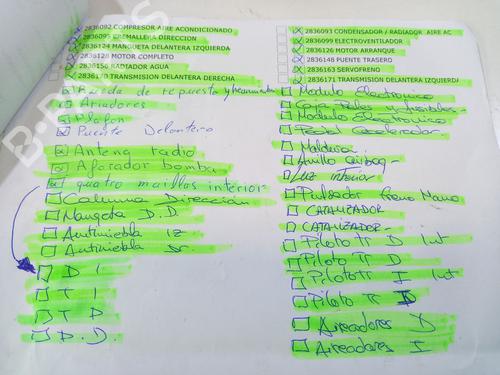 2836092 COMPRESOR AIRE ACONDICIONADO
2836095 CREMALLERA DIRECCION
2836124 MANGUETA DELANTERA IZQUIERDA
2836128 MOTOR COMPLETO
2836156 RADIADOR AGUA
2836170 TRANSMISION DELANTERA DERECHA
Rueda de repuesto y herramientas
Aireadores
Plafon
Puente Delantero
Antena radio
Aforador bomba
quatro manillas interior
Columna Dirección
Mangeta D.D
Antiniebla iz
Antiniebla Dr.
D I
T I
T D
D.D.
2836093 CONDENSADOR / RADIADOR AIRE AC
2836099 ELECTROVENTILADOR
2836126 MOTOR ARRANQUE
2836148 PUENTE TRASERO
2836163 SERVOFRENO
2836171 TRANSMISION DELANTERA IZQUIERDA
Modulo Electronico
Caja Reles
Modulo Electronico
Pedal Acelerador
Moldura
Anillo Airbag
Luz interior
Pulsador Freno Mano
CATALIZADOR
CATALIZADOR
Piloto Tr D Int
Piloto Tr D
Piloto Tr I Int
Piloto Tr I
Aireadores D
Aireadores I